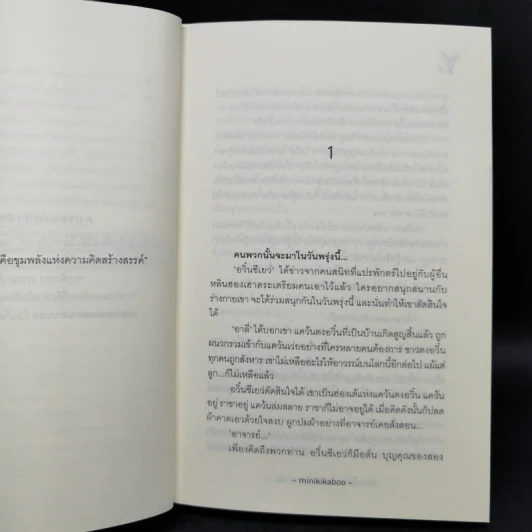 คือขุมพลังแห่งความคิดสร้างสรรค์"
1
คนพวกนั้นจะมาในวันพรุ่งนี้...
'อวิ๋นซีเยว่' ได้ข่าวจากคนสนิทที่แปรพักตร์ไปอยู่กับผู้อื่น
หลินฮองเฮาตระเตรียมคนเอาไว้แล้ว ใครอยากสนุกสนานกับ
ร่างกายเขา จะได้ร่วมสนุกกันในวันพรุ่งนี้ และนั่นทำให้เขาตัดสินใจ
ได้
'อาลี่' ได้บอกเขา แคว้นตงอวิ๋นที่เป็นบ้านเกิดสูญสิ้นแล้ว ถูก
ผนวกรวมเข้ากับแคว้นเว่ยอย่างที่ใครหลายคนต้องการ ชาวตงอวิ๋น
ทุกคนถูกสังหาร เขาไม่เหลืออะไรให้อาวรณ์บนโลกนี้อีกต่อไป แม้แต่
ลูก...ก็ไม่เหลือแล้ว
อวิ๋นซีเยว่ตัดสินใจได้ เขาเป็นฮ่องเต้แห่งแคว้นตงอวิ๋น แคว้น
อยู่ ราชาอยู่ แคว้นล่มสลาย ราชาก็ไม่อาจอยู่ได้ เมื่อคิดดังนั้นก็ปลด
ผ้าคาดเอวด้วยใจสงบ ผูกปมผ้าอย่างที่อาจารย์เคยสั่งสอน...
'อาจารย์...'
เพียงคิดถึงพวกท่าน อวิ๋นซีเยว่ก็มือสั่น บุญคุณของสอง
~ minikikaboo ~